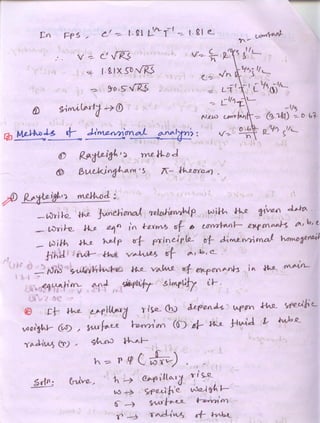 In FPS, C' = 1.81 L^1/2 T^-1 = 1.81 C
n - constant
∴ V = C' √RS
V = C/n R^2/3 i^1/2
= 1.81 × 50 √RS
= 90.5 √RS
④ Similarly → ①
New constant = (3.28)^-1/3 = 0.67
Methods of dimensional analysis:
① Rayleigh's method
② Buckingham's π-theorem.
① Rayleigh's method:
- Write the functional relationship with the given data
- Write the eqn in terms of a constant exponents a, b, c
- With the help of principle of dimensional homogeneit
find out the values of a, b, c
- Now substitute the value of exponents in the main
equation and simplify it.
If the capillary rise (h) depends upon the specific
weight (ω), surface tension (σ) of the fluid & tube
radius (r). show that
h = r φ (σ/ωr²)
Soln: Given, h → capillary rise
ω → specific weight
σ → surface tension
r → radius of tube